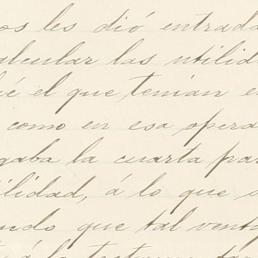 os les dió entrada
alcular las utilid
ué el que tenían e
como en esa opera
gaba la cuarta par
ilidad, á lo que
ndo que tal vent